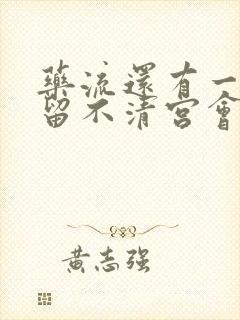 藥流還有一
留不清宮會
黃志强